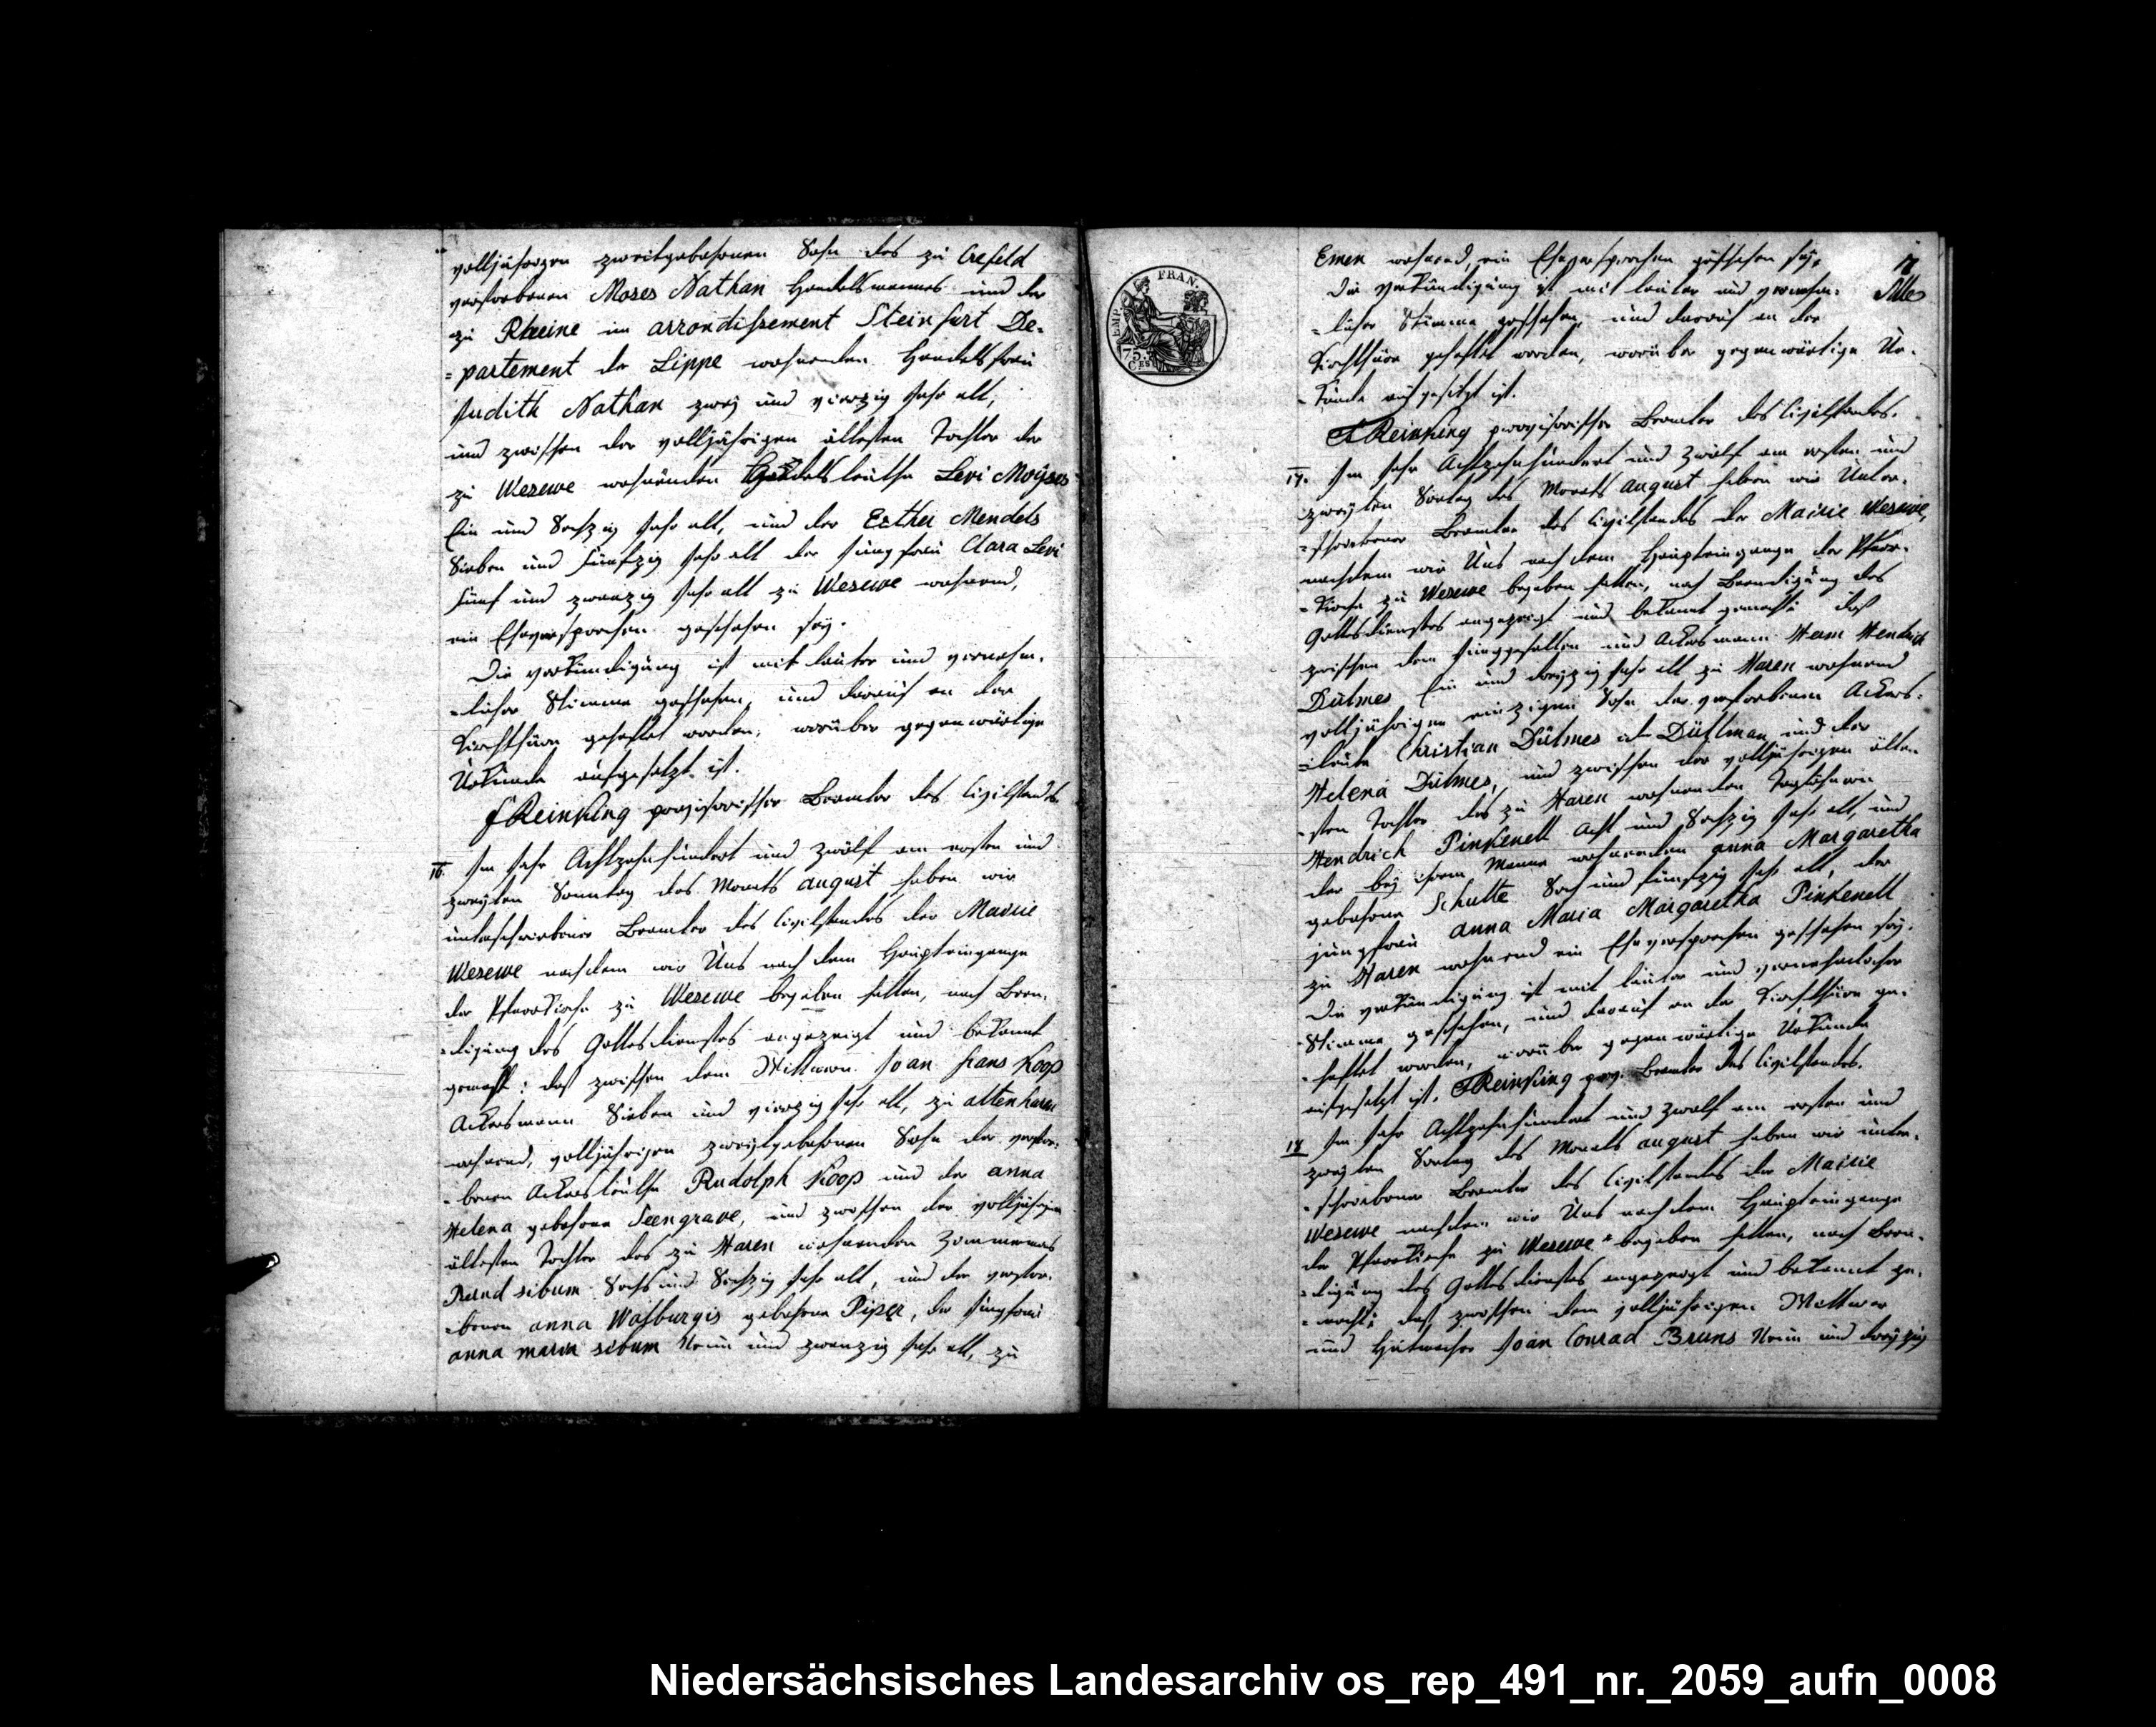 volljährigen zweitgebohrnen Sohn des zu Crefeld
verstorbenen Moses Nathan Handelsmannes und der
zu Rheine im arrondissement Steinfurt De-
=partement der Lippe wohnenden Handelsfrau
Judith Nathan zwey und vierzig Jahr alt,
und zwischen der volljährigen ältesten Tochter der
zu Wesewe wohnenden Handelsleuthe Levi Moyses
Ein und Sechzig Jahr alt, und der Esther Mendels
Sieben und Fünfzig Jahr alt der Jungfrau Clara Levi
fünf und zwanzig Jahr alt zu Wesewe wohnend,
ein Eheversprechen geschehen sey.
Die verkündigung ist mit lauter und vernehm-
=licher Stimme geschehen, und darauf an der
Kirchthüre geheftet worden, worüber gegenwärtige
Urkunde aufgesetzt ist.
Reinking provisorischer Beamter des Civilstandes
16. Im Jahr Achtzehnhundert und zwölf am ersten und
zweyten Sonntag des Monats august haben wir
unterschriebener Beamter des Civilstandes der Mairie
Wesewe nachdem wir Uns nach dem Haupteingange
der Pfarrkirche zu Wesewe begeben hatten, nach Been-
=digung des Gottesdienstes angezeigt und bekannt
gemacht: daß zwischen dem Wittwer Joan frans Koop
Ackersmann Sieben und vierzig Jahr alt, zu altenharen
wohnend, volljährigen zweytgebohrnen Sohn der verstor-
=benen Ackersleuthe Rudolph Koop und der anna
Helena gebohrne Seengrave, und zwischen der volljährigen
ältesten Tochter des zu Haren wohnenden Zimmermans
Berend sibum Sechs und Sechzig Jahr alt, und der verstor-
=benen anna Walburgis gebohrne Piper, der Jungfrau
anna maria sibum Neun und zwanzig Jahr alt, zu
EMP. FRAN.
75
CES
17
Emen wohnend, ein Eheversprechen geschehen sey.
Die Verkündigung ist mit lauter und vernehm-
=licher Stimme geschehen, und darauf an der
Kirchthüre geheftet worden, worüber gegenwärtige Ur-
=kunde aufgesetzt ist.
Reinking provisorischer Beamter des Civilstandes.
17. Im Jahr Achtzehnhundert und Zwölf am ersten und
zweyten Sontag des Monats August haben wir Unter-
=schriebener Beamter des Civilstandes der Mairie Wesewe,
nachdem wir Uns nach dem Haupteingange der Pfarr-
=kirche zu Wesewe begeben hatten, nach Beendigung des
Gottesdienstes angezeigt und bekannt gemacht: daß
zwischen dem Junggesellen und Ackersmann Herm Hendrich
Dülmes Ein und dreyzig Jahr alt zu Haren wohnend
volljährigen einzigen Sohn der verstorbenen Ackers-
=leute Christian Dülmes Düllman und der
Helena Dülmes, und zwischen der volljährigen älte-
=sten Tochter des zu Haren wohnenden Taglöhners
Hendrich Pinkenell Acht und Sechzig Jahr alt, und
der bey ihrem Manne wohnenden anna Margaretha
gebohrne Schulte Sechs und fünfzig Jahr alt, der
jungfrau anna Maria Margaretha Pinkenell
zu Haren wohnend ein Eheversprechen geschehen sey.
Die verkündigung ist mit lauter und vernehmlicher
Stimme geschehen, und darauf an der Kirchthüre ge-
=heftet worden, worüber gegenwärtige Urkunde
aufgesetzt ist. Reinking prov. Beamter des Civilstandes.
18 Im Jahr Achtzehnhundert und Zwölf am ersten und
zweyten Sontag des Monats august haben wir unter-
=schriebener Beamter des Civilstandes der Mairie
Wesewe nachdem wir Uns nach dem Haupteingange
der Pfarrkirche zu Wesewe begeben hatten, nach Been-
=digung des Gottesdienstes angezeigt und bekannt ge-
=macht: daß zwischen dem volljährigen Wittwer
und Joan Conrad Bruns Neun und dreyzig
Niedersächsisches Landesarchiv os_rep_491_nr._2059_aufn_0008